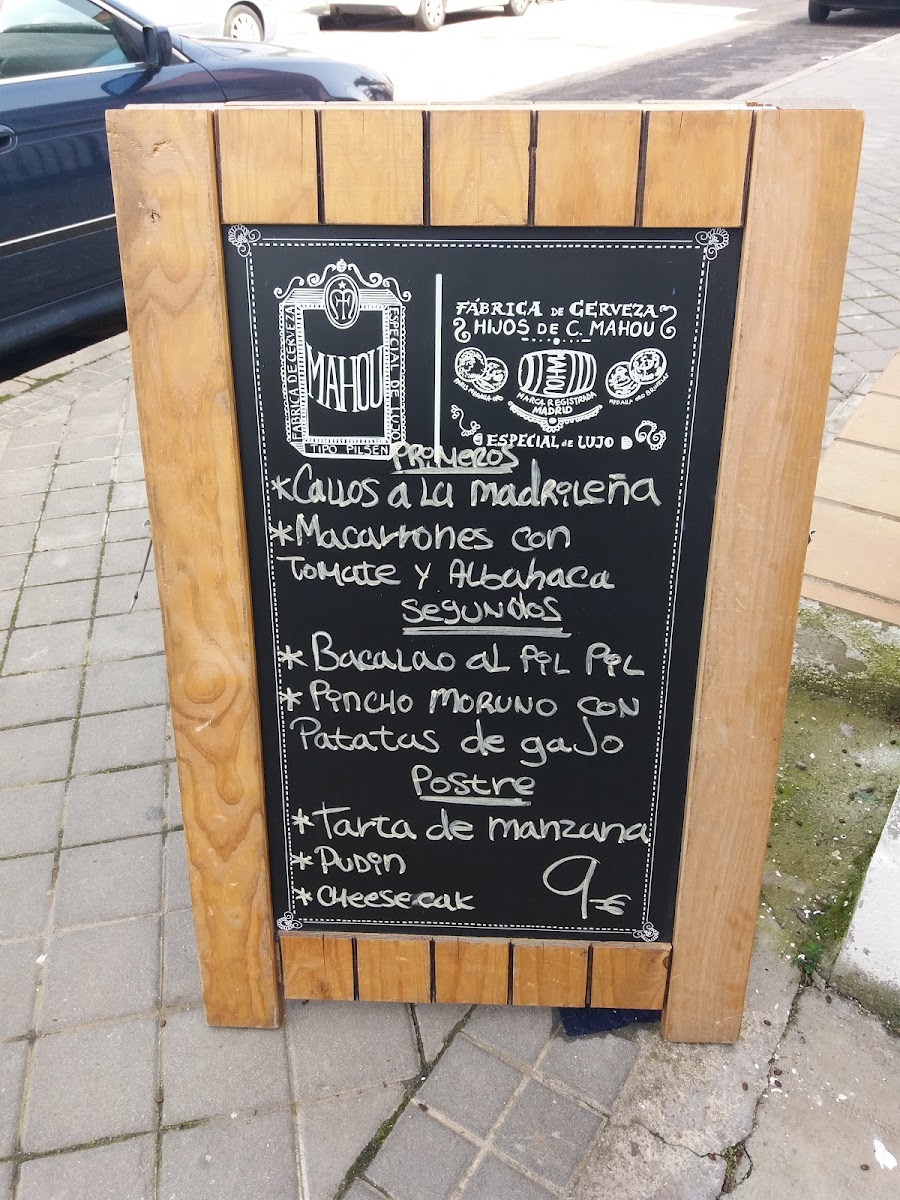 FABRICA DE CERVEZA
MAHOU
ESPECIAL DE LUJO
TIPO PILSEN
FÁBRICA DE CERVEZA
HIJOS DE C. MAHOU
MARCA REGISTRADA
MADRID
ESPECIAL de LUJO
PRIMEROS
*CALLOS A LA MADRILEÑA
*Macarrones con
TOMATE Y ALBAHACA
SEGUNDOS
*BACALAO AL PIL PIL
*PINCHO MORUNO CON
Patatas de gajo
Postre
*Tarta de manzana
*PUDIN
*CHEESECAK
9€